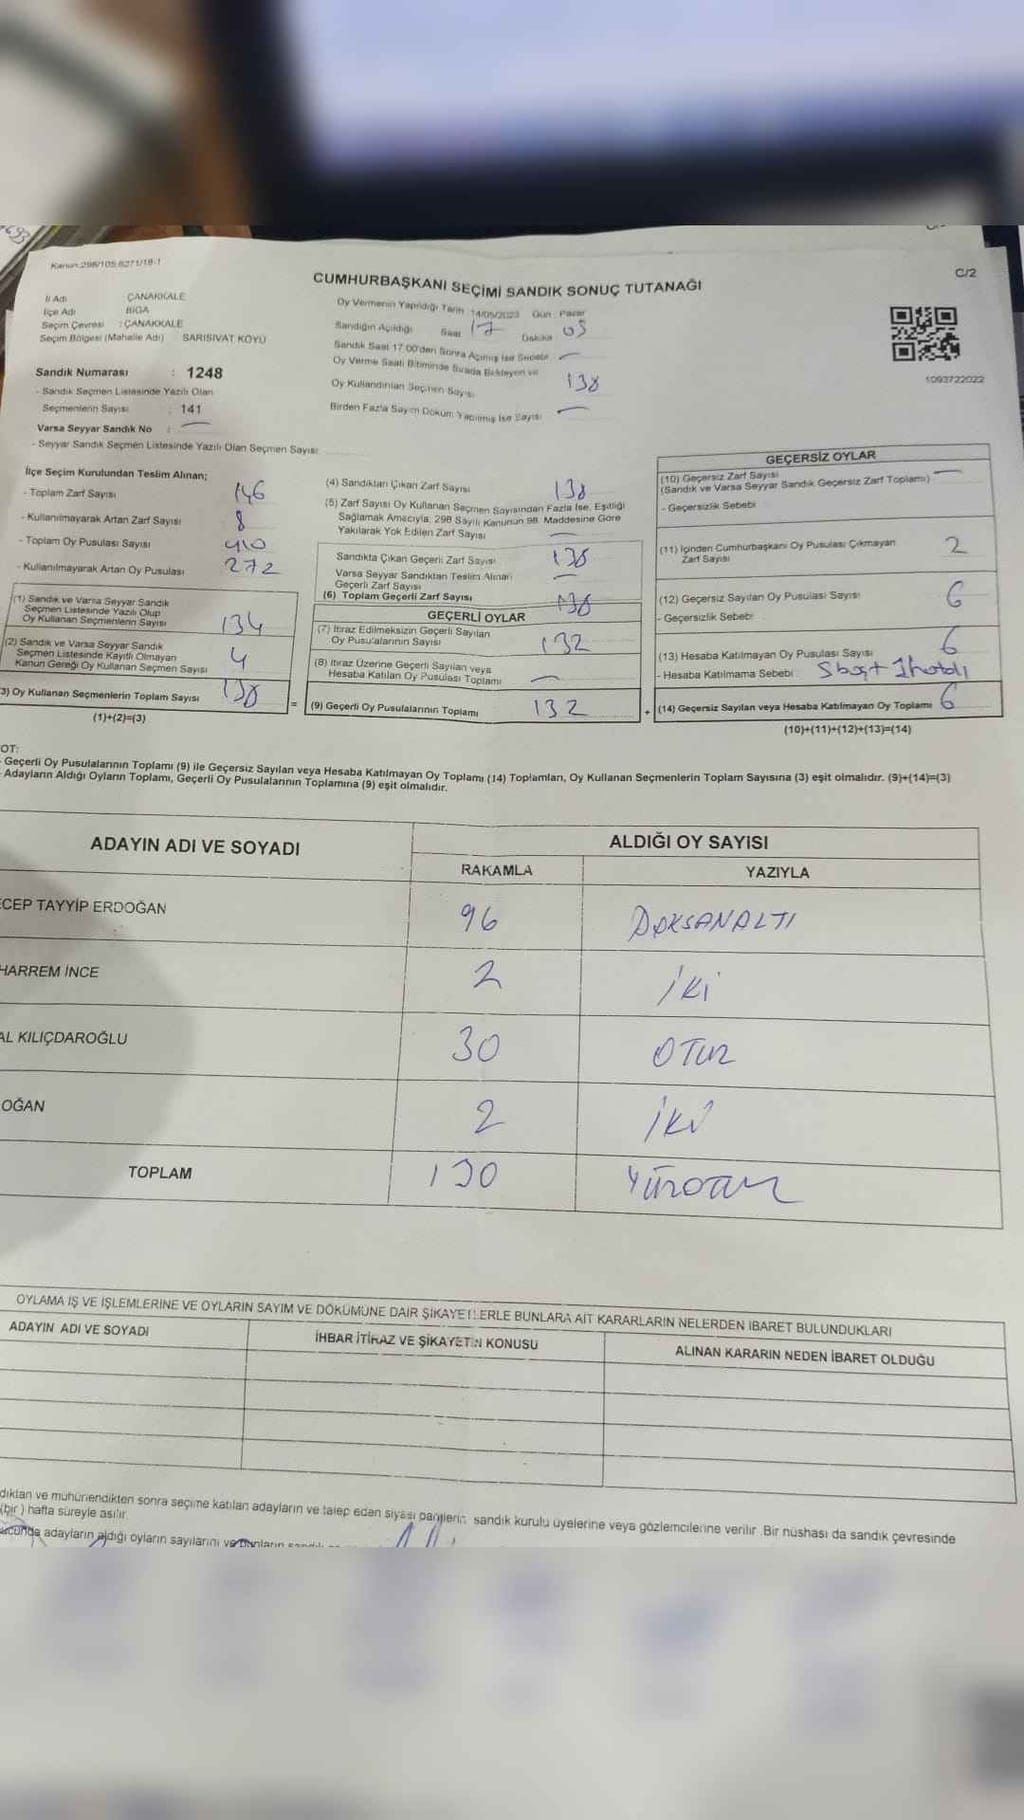 Kanun:298/105,6271/18-1
C/2
CUMHURBAŞKANI SEÇİMİ SANDIK SONUÇ TUTANAĞI
İl Adı ÇANAKKALE
İlçe Adı BİGA
Seçim Çevresi : ÇANAKKALE
Seçim Bölgesi (Mahalle Adı) SARISIVAT KÖYÜ
Sandık Numarası : 1248
- Sandık Seçmen Listesinde Yazılı Olan
Seçmenlerin Sayısı : 141
Varsa Seyyar Sandık No : —
- Seyyar Sandık Seçmen Listesinde Yazılı Olan Seçmen Sayısı
Oy Vermenin Yapıldığı Tarih 14/05/2023 Gün : Pazar
Sandığın Açıldığı Saat 17 Dakika 05
Sandık Saat 17:00'den Sonra Açılmış İse Sebebi —
Oy Verme Saati Bitiminde Sırada Bekleyen ve
Oy Kullandırılan Seçmen Sayısı 138
Birden Fazla Sayım Döküm Yapılmış İse Sayısı —
1093722022
İlçe Seçim Kurulundan Teslim Alınan;
- Toplam Zarf Sayısı 146
- Kullanılmayarak Artan Zarf Sayısı 8
- Toplam Oy Pusulası Sayısı 410
- Kullanılmayarak Artan Oy Pusulası 272
(1) Sandık ve Varsa Seyyar Sandık
Seçmen Listesinde Yazılı Olup
Oy Kullanan Seçmenlerin Sayısı 134
(2) Sandık ve Varsa Seyyar Sandık
Seçmen Listesinde Kayıtlı Olmayan
Kanun Gereği Oy Kullanan Seçmen Sayısı 4
3) Oy Kullanan Seçmenlerin Toplam Sayısı 138
(1)+(2)=(3)
(4) Sandıktan Çıkan Zarf Sayısı 138
(5) Zarf Sayısı Oy Kullanan Seçmen Sayısından Fazla İse, Eşitliği
Sağlamak Amacıyla, 298 Sayılı Kanunun 98. Maddesine Göre
Yakılarak Yok Edilen Zarf Sayısı —
Sandıkta Çıkan Geçerli Zarf Sayısı 138
Varsa Seyyar Sandıktan Teslim Alınan
Geçerli Zarf Sayısı —
(6) Toplam Geçerli Zarf Sayısı 138
GEÇERLİ OYLAR
(7) İtiraz Edilmeksizin Geçerli Sayılan
Oy Pusulalarının Sayısı 132
(8) İtiraz Üzerine Geçerli Sayılan veya
Hesaba Katılan Oy Pusulası Toplamı —
= (9) Geçerli Oy Pusulalarının Toplamı 132
GEÇERSİZ OYLAR
(10) Geçersiz Zarf Sayısı —
(Sandık ve Varsa Seyyar Sandık Geçersiz Zarf Toplamı)
- Geçersizlik Sebebi
(11) İçinden Cumhurbaşkanı Oy Pusulası Çıkmayan
Zarf Sayısı 2
(12) Geçersiz Sayılan Oy Pusulası Sayısı 6
- Geçersizlik Sebebi
(13) Hesaba Katılmayan Oy Pusulası Sayısı 6
- Hesaba Katılmama Sebebi
+ (14) Geçersiz Sayılan veya Hesaba Katılmayan Oy Toplamı 6
(10)+(11)+(12)+(13)=(14)
OT:
Geçerli Oy Pusulalarının Toplamı (9) ile Geçersiz Sayılan veya Hesaba Katılmayan Oy Toplamı (14) Toplamları, Oy Kullanan Seçmenlerin Toplam Sayısına (3) eşit olmalıdır. (9)+(14)=(3)
Adayların Aldığı Oyların Toplamı, Geçerli Oy Pusulalarının Toplamına (9) eşit olmalıdır.
ADAYIN ADI VE SOYADI ALDIĞI OY SAYISI
RAKAMLA YAZIYLA
ECEP TAYYİP ERDOĞAN 96 DOKSANALTI
HARREM İNCE 2 İKİ
AL KILIÇDAROĞLU 30 OTUZ
OĞAN 2 İKİ
TOPLAM 130 YÜZOTUZ
OYLAMA İŞ VE İŞLEMLERİNE VE OYLARIN SAYIM VE DÖKÜMÜNE DAİR ŞİKAYETLERLE BUNLARA AİT KARARLARIN NELERDEN İBARET BULUNDUKLARI
ADAYIN ADI VE SOYADI İHBAR İTİRAZ VE ŞİKAYETİN KONUSU ALINAN KARARIN NEDEN İBARET OLDUĞU
dıktan ve mühürlendikten sonra seçime katılan adayların ve talep eden siyasi partilerin sandık kurulu üyelerine veya gözlemcilerine verilir. Bir nüshası da sandık çevresinde
(bir) hafta süreyle asılır.
adayların aldığı oyların sayılarını ve bunların